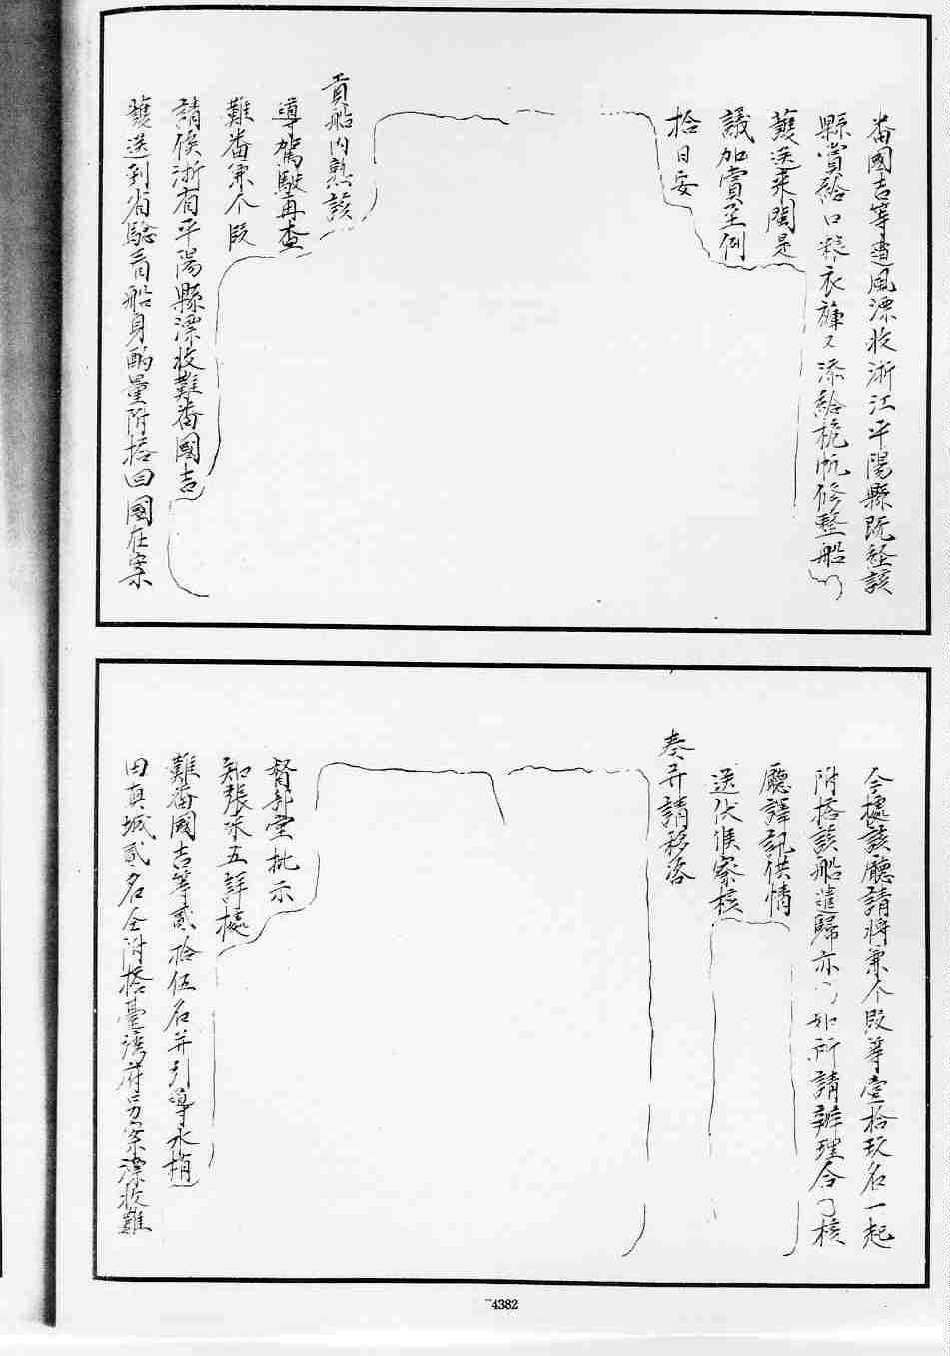 番國吉等遭風漂收浙江平陽縣既經該
縣賞給口粮衣褲又添給桅帆修整船
護送來閩是
議加賞至例
拾日安
貢船内熟該
導駕駛再查
難番兼个段
請俟浙省平陽縣漂收難番國吉
護送到省驗看船身酌量附搭回國在案
今據該廳請將兼个段等壹拾玖名一起
附搭該船遣歸亦 如所請辦理合 核
廳譯訊供情
送伏候察核
奏并請移咨
督部堂批示
知張珠五詳據
難番國吉等貳拾伍名并引導水梢
田真城貳名仝附搭臺湾府另案漂收難
4382